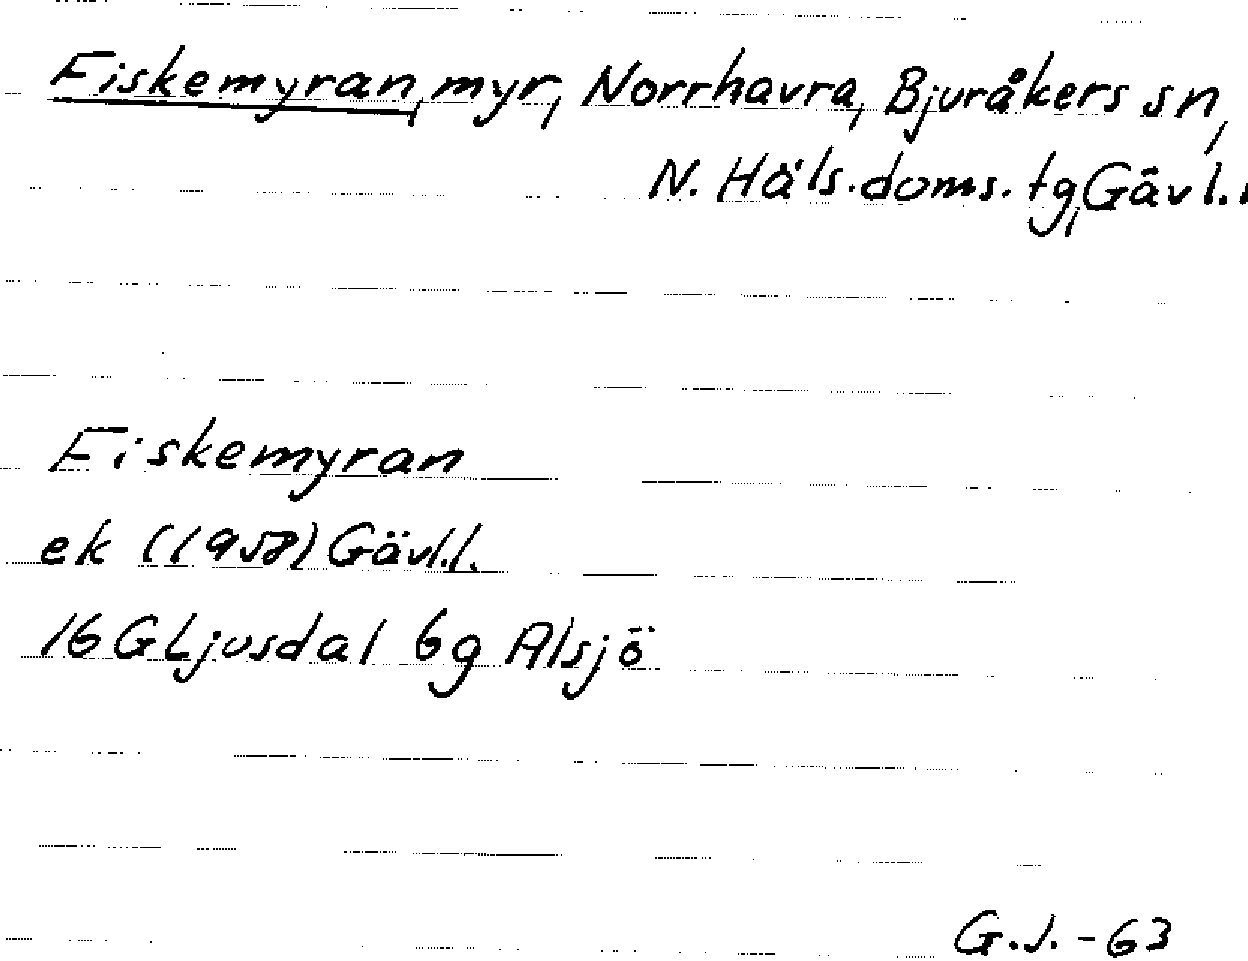 Fiskemyran, myr, Norrhavra, Bjuråkers sn,
N. Häls. doms. tg, Gävl. l
Fiskemyran
ek (1958) Gävl.l.
16 G Ljusdal 6g Alsjö
G.J. -63